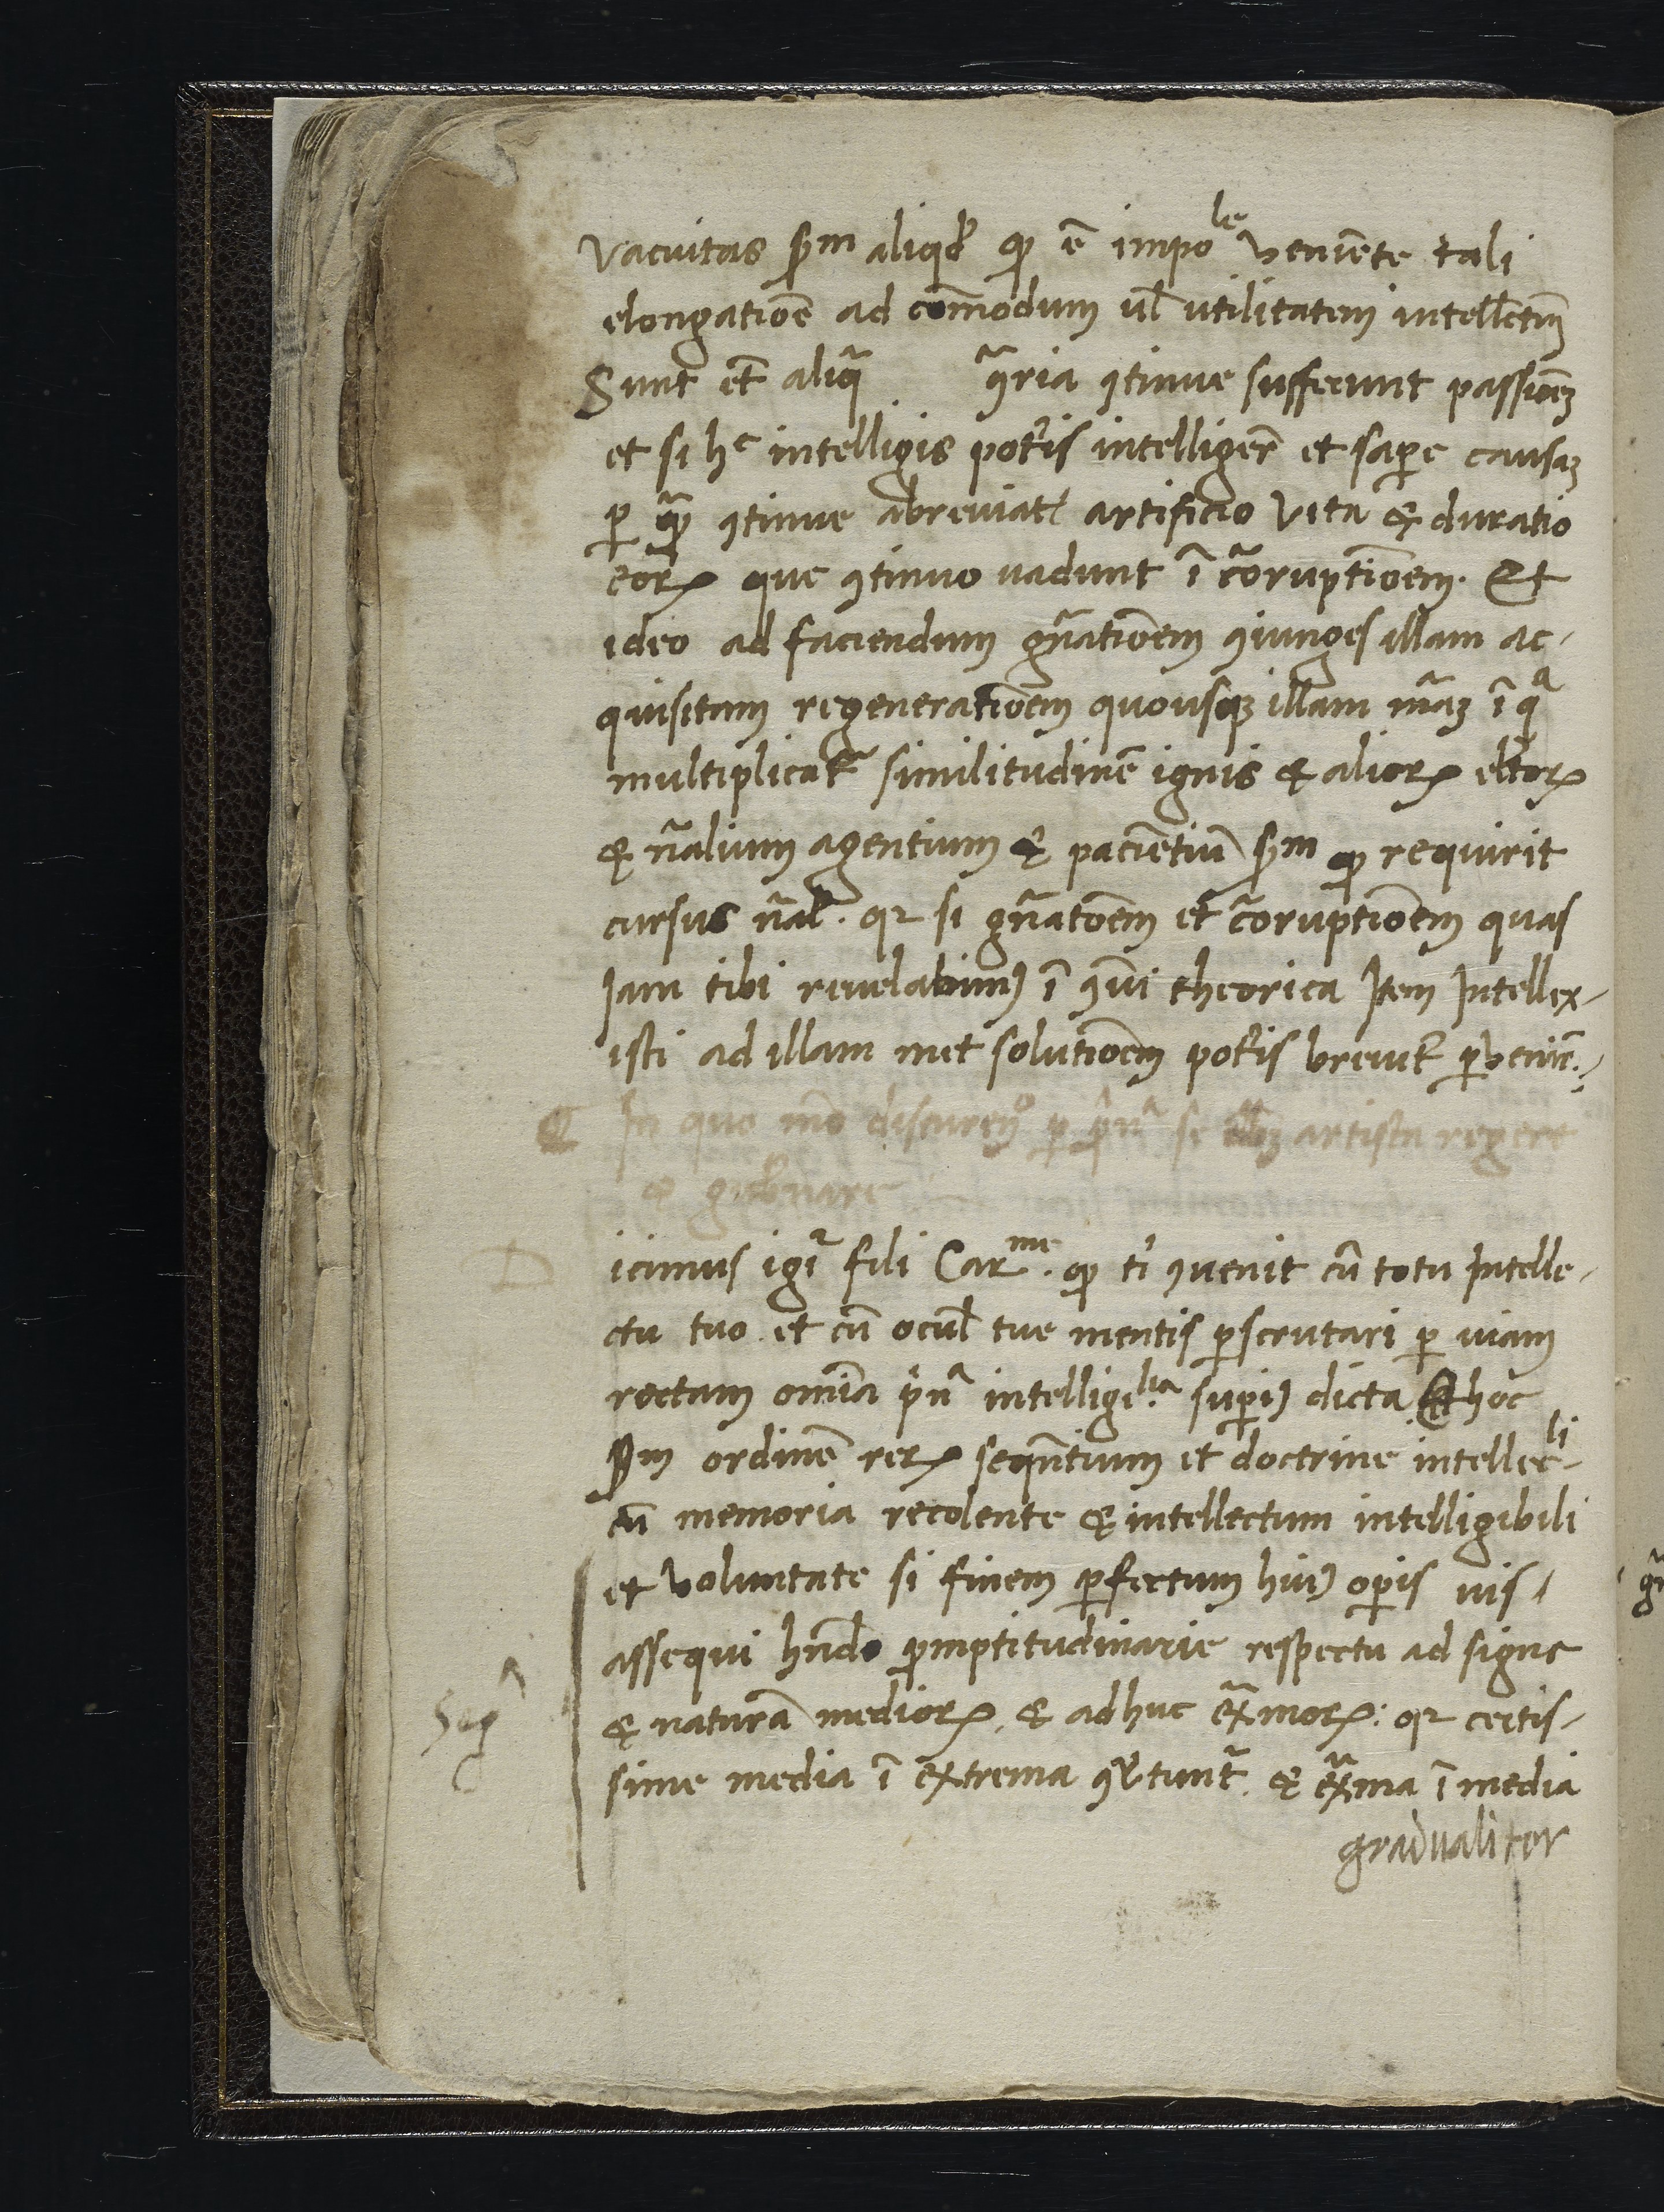 vacuitas ẜm aliqđ ꝙ ē impoˡᵉ veniēte tali
elongatiōe ad com̄odum ul̄ utilitatem intellectm̄
Sunt et̄ aliq̃ ꝯ̃ria ꝯtinue sufferunt passiōeꝫ
et si hᶜ intelligis pot̃is intelliger̄ et sap̲e causaꝫ
ꝑ quā ꝯtinue abreuiat᷑ artificio vita & duratio
eoꝝ que ꝯtinuo uadunt ī c̃oruptiōem. Et
ideo ad faciendum gñatiōem ꝯiunges illam ac-
quisitam regeneratiōem quousqꝫ illam mãꝫ ī qᵃ
multiplicat᷑ similitudinē ignis & alioꝝ eltoꝝ
& ñalium agentium & paciētiū ẜm ꝙ requirit
cursus ñal̄. qꝛ si gñatōem et c̃oruptiōem quas
Jam tibi reuelabimꝰ ī ꝯuī theorica Jtem Jntellex-
isti ad illam met solutiōem pot̃is breuit᷑ ꝑvenir̄.
In quo mō discuren̄º ꝑ p̃nᵃ se artista regere
& gub̄nare
D
icimus igr̃ fili Carᵐᵉ. ꝙ tⁱ ꝯuenit cū totu Jntelle-
ctu tuo et cū ocul̄ tue mentis ꝑscrutari ꝑ uiam
rectam omīa p̃nᵃ intelligiˡⁱᵃ. sup̲iꝰ dicta & hoc
ẜm ordinē reꝝ seqūtium et doctrine intellec-ˡⁱ
cū memoria recolente & intellectum intelligibili
et voluntate si finem ꝑfectum huiꝰ op̲is uis
assequi hn̄do ꝓmptitudinarie respectu ad signe
& naturā medioꝝ, & adhuc ex̃moꝝ: qꝛ certis-
sime media ī extrema ꝯv̄tunt̃. & ex̃ma ī media
gradualiter